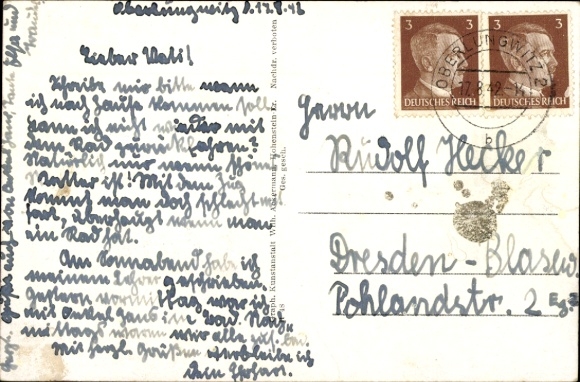 Oberlungwitz, d. 17.8.42
Lieber Vati!
Schreibe mir bitte wann
ich nach Hause kommen soll.
Kann ich nicht wieder mit
dem Rad zurückfahren?
Natürlich nur wenn schön
Wetter ist! Mit dem Zug
kommt man doch schlecht
fort, überhaupt wenn man
ein Rad hat.
Am Sonnabend habe ich
meinem Lehrer geschrieben.
Gestern vormittag war ich
mit Onkel Hans im Bad. Nach-
mittags waren wir alle
Mit herzl. Grüßen verbleibe ich
Dein
Nachdr. verboten
Hohenstein-Er.
Ges. gesch.
Graph. Kunstanstalt Wilh.
3 3 3 3
DEUTSCHES REICH DEUTSCHES REICH
OBERLUNGWITZ 2
17.8.42
b
Herrn
Rudolf Hecker
Dresden-Blasew
Pohlandstr. 2